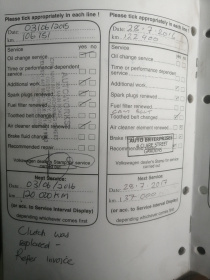 Please tick appropriately in each line !
Date: 03/06/2015
km: 106 181
Service yes no
Oil change service
Time or performance dependent
service
Additional work
Spark plugs renewed
Fuel filter renewed
Toothed belt changed
Air cleaner element renewed
Brake fluid change
Recommended repair
Next Service:
Date: 03/06/2016
km: 120 000 KM
(or acc. to Service Interval Display)
depending whichever comes first
Clutch was
replaced -
Refer Invoice
Please tick appropriately in each line !
Date: 28.7.2016
km: 122 400
Service yes no
Oil change service
Time or performance dependent
service
Additional work
Spark plugs renewed
Fuel filter renewed
Toothed belt changed
Air cleaner element renewed
Brake fluid change
Recommended
AUTO ENTERPRISE
Volkswagen dealer's stamp to service
carried out
Next Service:
Date: 28.7.2017
km: 137 000
(or acc. to Service Interval Display)
depending whichever comes first